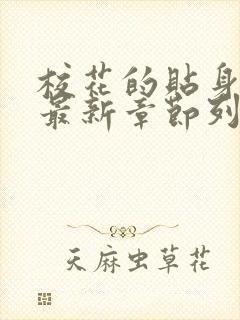 校花的貼身
最新章節列
天麻虫草花